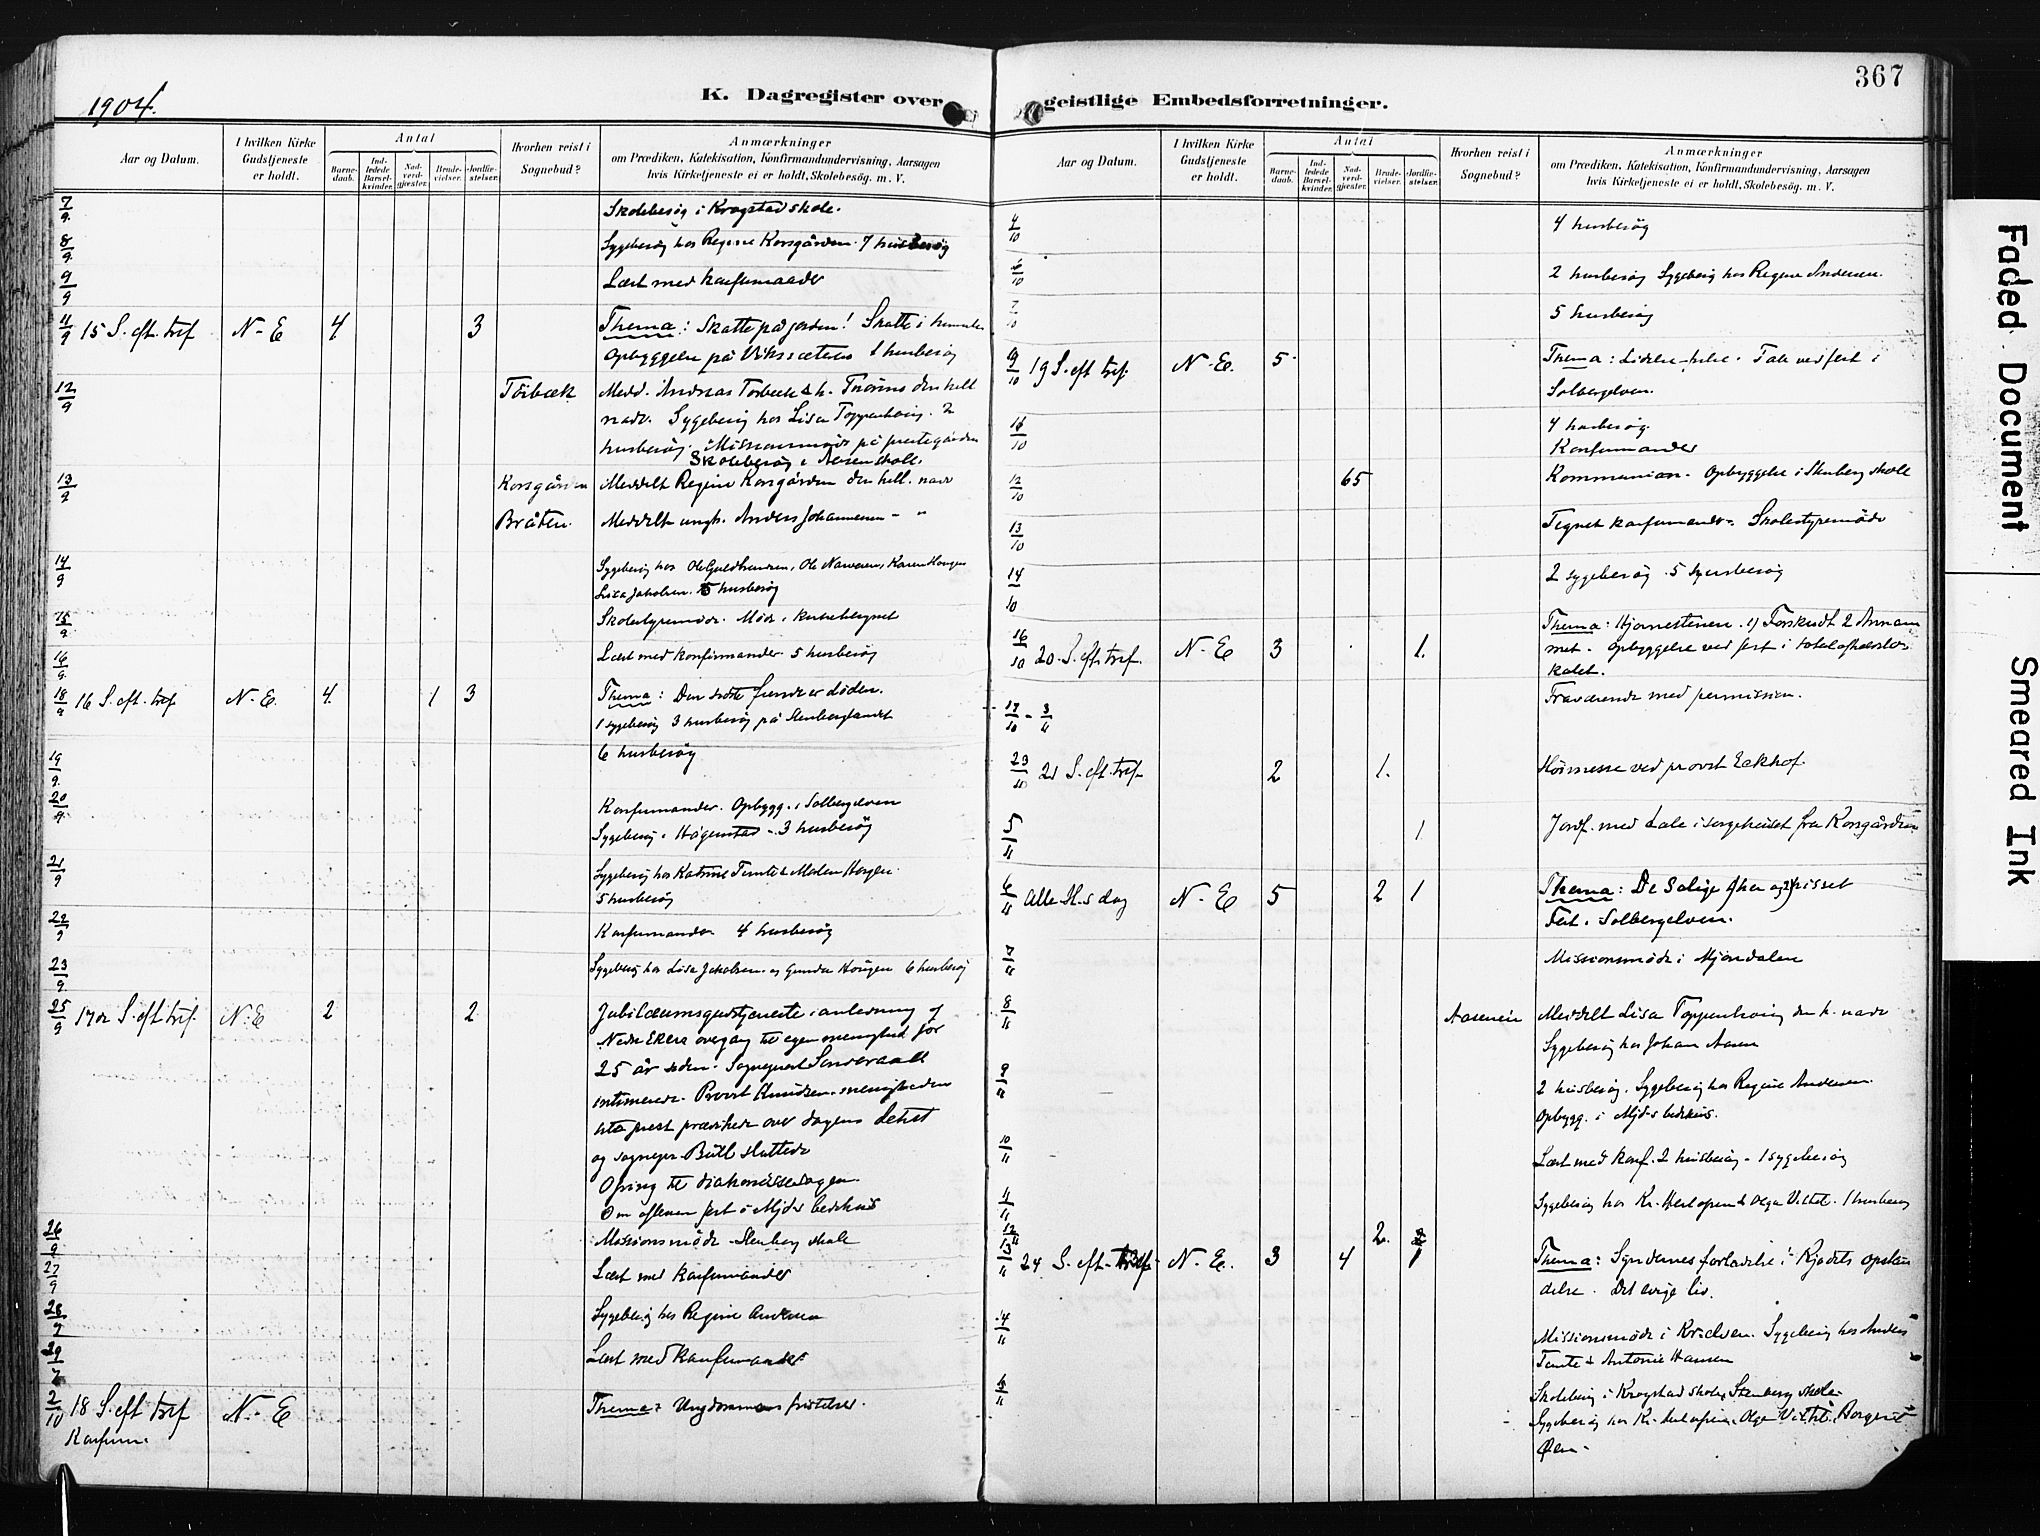 367
1904.
K. Dagregister over geistlige Embedsforretninger.
Aar og Datum.
I hvilken Kirke Gudstjeneste er holdt.
Antal
Barne-daab.
Ind-ledede Barsel-kvinder.
Nad-verd-gjæster.
Brude-vielser.
Jordfæ-stelser.
Hvorhen reist i Sognebud?
Anmærkninger
om Prædiken, Katekisation, Konfirmandundervisning, Aarsagen
hvis Kirketjeneste ei er holdt, Skolebesøg. m. V.
7/9 Skolebesøg i Krogstad skole.
8/9 Sygebesøg hos Regine Korsgården. 7 husbesøg
9/9 Læst med konfirmander
11/9 15 S. eft. tref N-E 4 3 Thema: Skatte på jorden! Skatte i himmelen
Opbyggelse på 1 husbesøg
12/9 Torbæk Medd. Andreas Torbæk d. h.
nadv. Sygebesøg hos Lisa Toppenhaug. 2
husbesøg. Missionsmøde på prestegården
Skolebesøg i Åsen skole.
13/9 Korsgården Meddelt Regine Korsgården den hell. nadv
Bråten. Meddelt ungk. Anders Johannesen - "
14/9 Sygebesøg hos Ole Guldbrandsen, Ole Narvesen, Karen Haugen
Lisa Jakobsen. 5 husbesøg
15/9 Skolestyremøde. Møde i
16/9 Læst med konfirmander 5 husbesøg
18/9 16 S. eft. tref N-E. 4. 1 3 Thema: Den sidste fiende er døden.
1 sygebesøg 3 husbesøg på Stenberglandet
19/9. 6 husbesøg
20/9. Konfirmander. Opbygg. i Solbergelven
Sygebesøg i Hagenstad - 3 husbesøg
21/9 Sygebesøg hos Katrine Temte & Horgen.
5 husbesøg
22/9 Konfirmander 4 husbesøg
23/9. Sygebesøg hos Lisa Jakobsen og Gunda Haugen 6 husbesøg
25/9 17de S. eft. tref. N-E 2 2 Jubilæumsgudstjeneste i anledning af
Nedre Ekers overgang til egen menighed for
25 år siden. Sogneprest
intimerede. Provst Knudsen menighedens
prest prædikede over dagens tekst
og sognepr. Bull sluttede
Ofring til diakonissesagen.
Om aftenen fest i Mjd.s bedehus
26/9 Missionsmøde - Stenberg skole
27/9 Læst med konfirmander
28/9 Sygebesøg hos Regine Andersen
29/9 Læst med konfirmander
2/10 18 S. eft tref N-E Thema: Ungdommens fristelser.
Konfirm.
4/10 4 husbesøg
6/10 2 husbesøg Sygebesøg hos Regine Andersen.
7/10 5 husbesøg
9/10 19 S. eft tref. N-E. 5 Thema: Tale ved fest i
Solbergelven.
4 husbesøg.
Konfirmander
12/10 65 Kommunion. Opbyggelse i Stenberg skole
13/10 Tegnet konfirmander. Skolestyremøde
14/10 2 sygebesøg 5 husbesøg
16/10 20 S. eft. tref. N-E 3 1. Thema: Hjørnestenen. 1) Forskudt 2 Annam
met. Opbyggelse ved fest i totalafholdslo
kalet.
17/10 - 3/11 Fraværende med permission.
23/10 21 S. eft. tref. 2 1. Høimesse ved provst Eckhof.
5/11 1 Jordf. med tale i sørgehuset fra Korsgården
6/11 Alle H-s dag N-E 5 2 1 Thema: De salige 1) her og 2) hisset
Fest i Solbergelven.
7/11 Missionsmøde i Mjøndalen
8/11 Aaseneie Meddelt Lisa Toppenhaug den h. nadv
Sygebesøg hos Johan Aasen
9/11 2 husbesøg. Sygebesøg hos Regine Andersen.
Opbygg. i Mjd.s bedehus.
10/11 Læst med konf. 2 husbesøg - 1 sygebesøg
11/11 Sygebesøg hos Kr. & Olga Vittel. 1 husbesøg
12/11 2. 2
13/11 24 S. eft. tref. N-E. 3 4 1 Thema: Syndernes forladelse. Kjødets opstan
delse. Det evige liv.
14/11 Missionsmøde i Krelsen. Sygebesøg hos Anders
Temte & Antonie Hansen
Skolebesøg i Krogstad skole, Stenberg skole.
Sygebesøg hos Kr. Olga Vittel,
Øen.
Faded Document
Smeared Ink